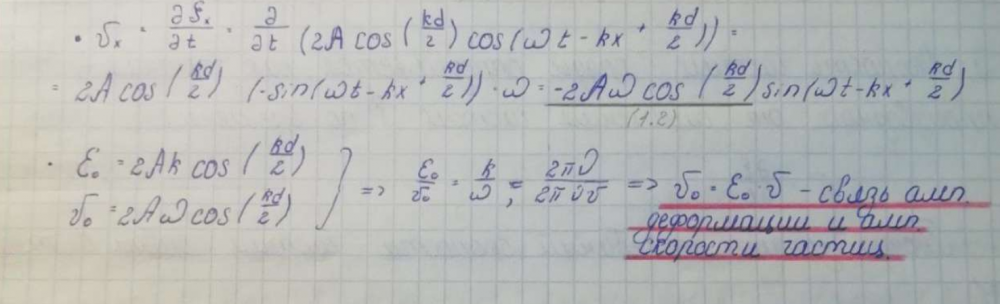 • υₓ = ∂ξₓ/∂t = ∂/∂t (2A cos(kd/2) cos(ωt - kx + kd/2)) =
= 2A cos(kd/2) (-sin(ωt - kx + kd/2)) · ω = -2Aω cos(kd/2) sin(ωt - kx + kd/2)
(1.2)
• ε₀ = 2Ak cos(kd/2)
υ₀ = 2Aω cos(kd/2) ] => ε₀/υ₀ = k/ω = 2πν/2πνυ => υ₀ = ε₀·υ - связь амп.
деформации и амп.
скорости частиц.